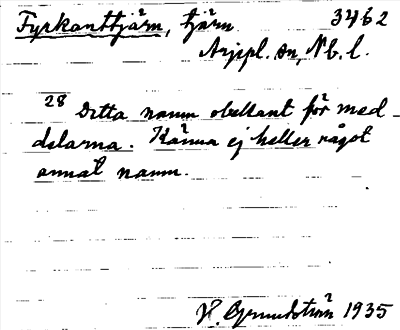 Fyrkanttjärn, tjärn 3462
Arjepl. sn, Nb. l.
28 Detta namn obekant för med-
delarna. Känna ej heller något
annat namn.
1935